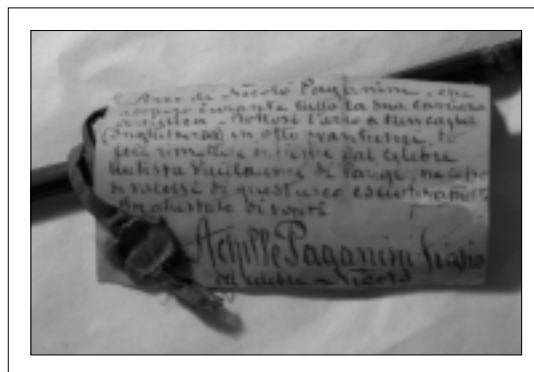 Arco di Nicolò Paganini, che
adoperò durante tutta la sua carriera
artistica. Rottosi l'arco a Newcastle
(Inghilterra) in otto frantumi, lo
fece rimettere insieme dal celebre
liutista Vuillaume di Parigi, ma
di valersi di quest'arco
di sorta
Achille Paganini Figlio
del celebre Nicolò